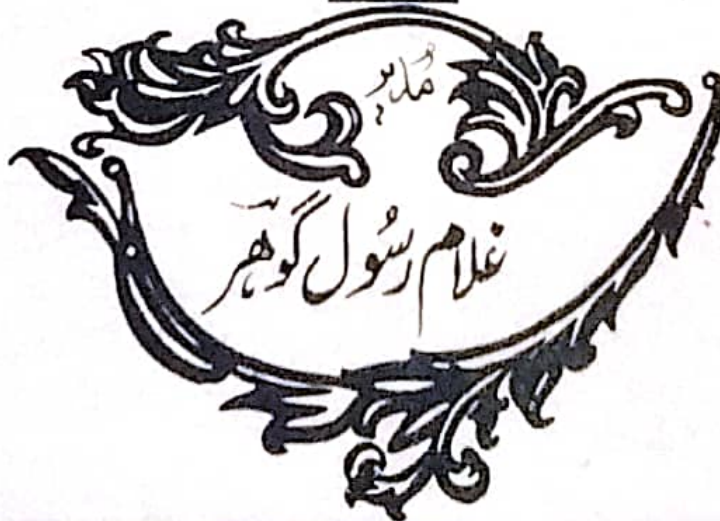 مُدیر
غلام رسُول گوھَر